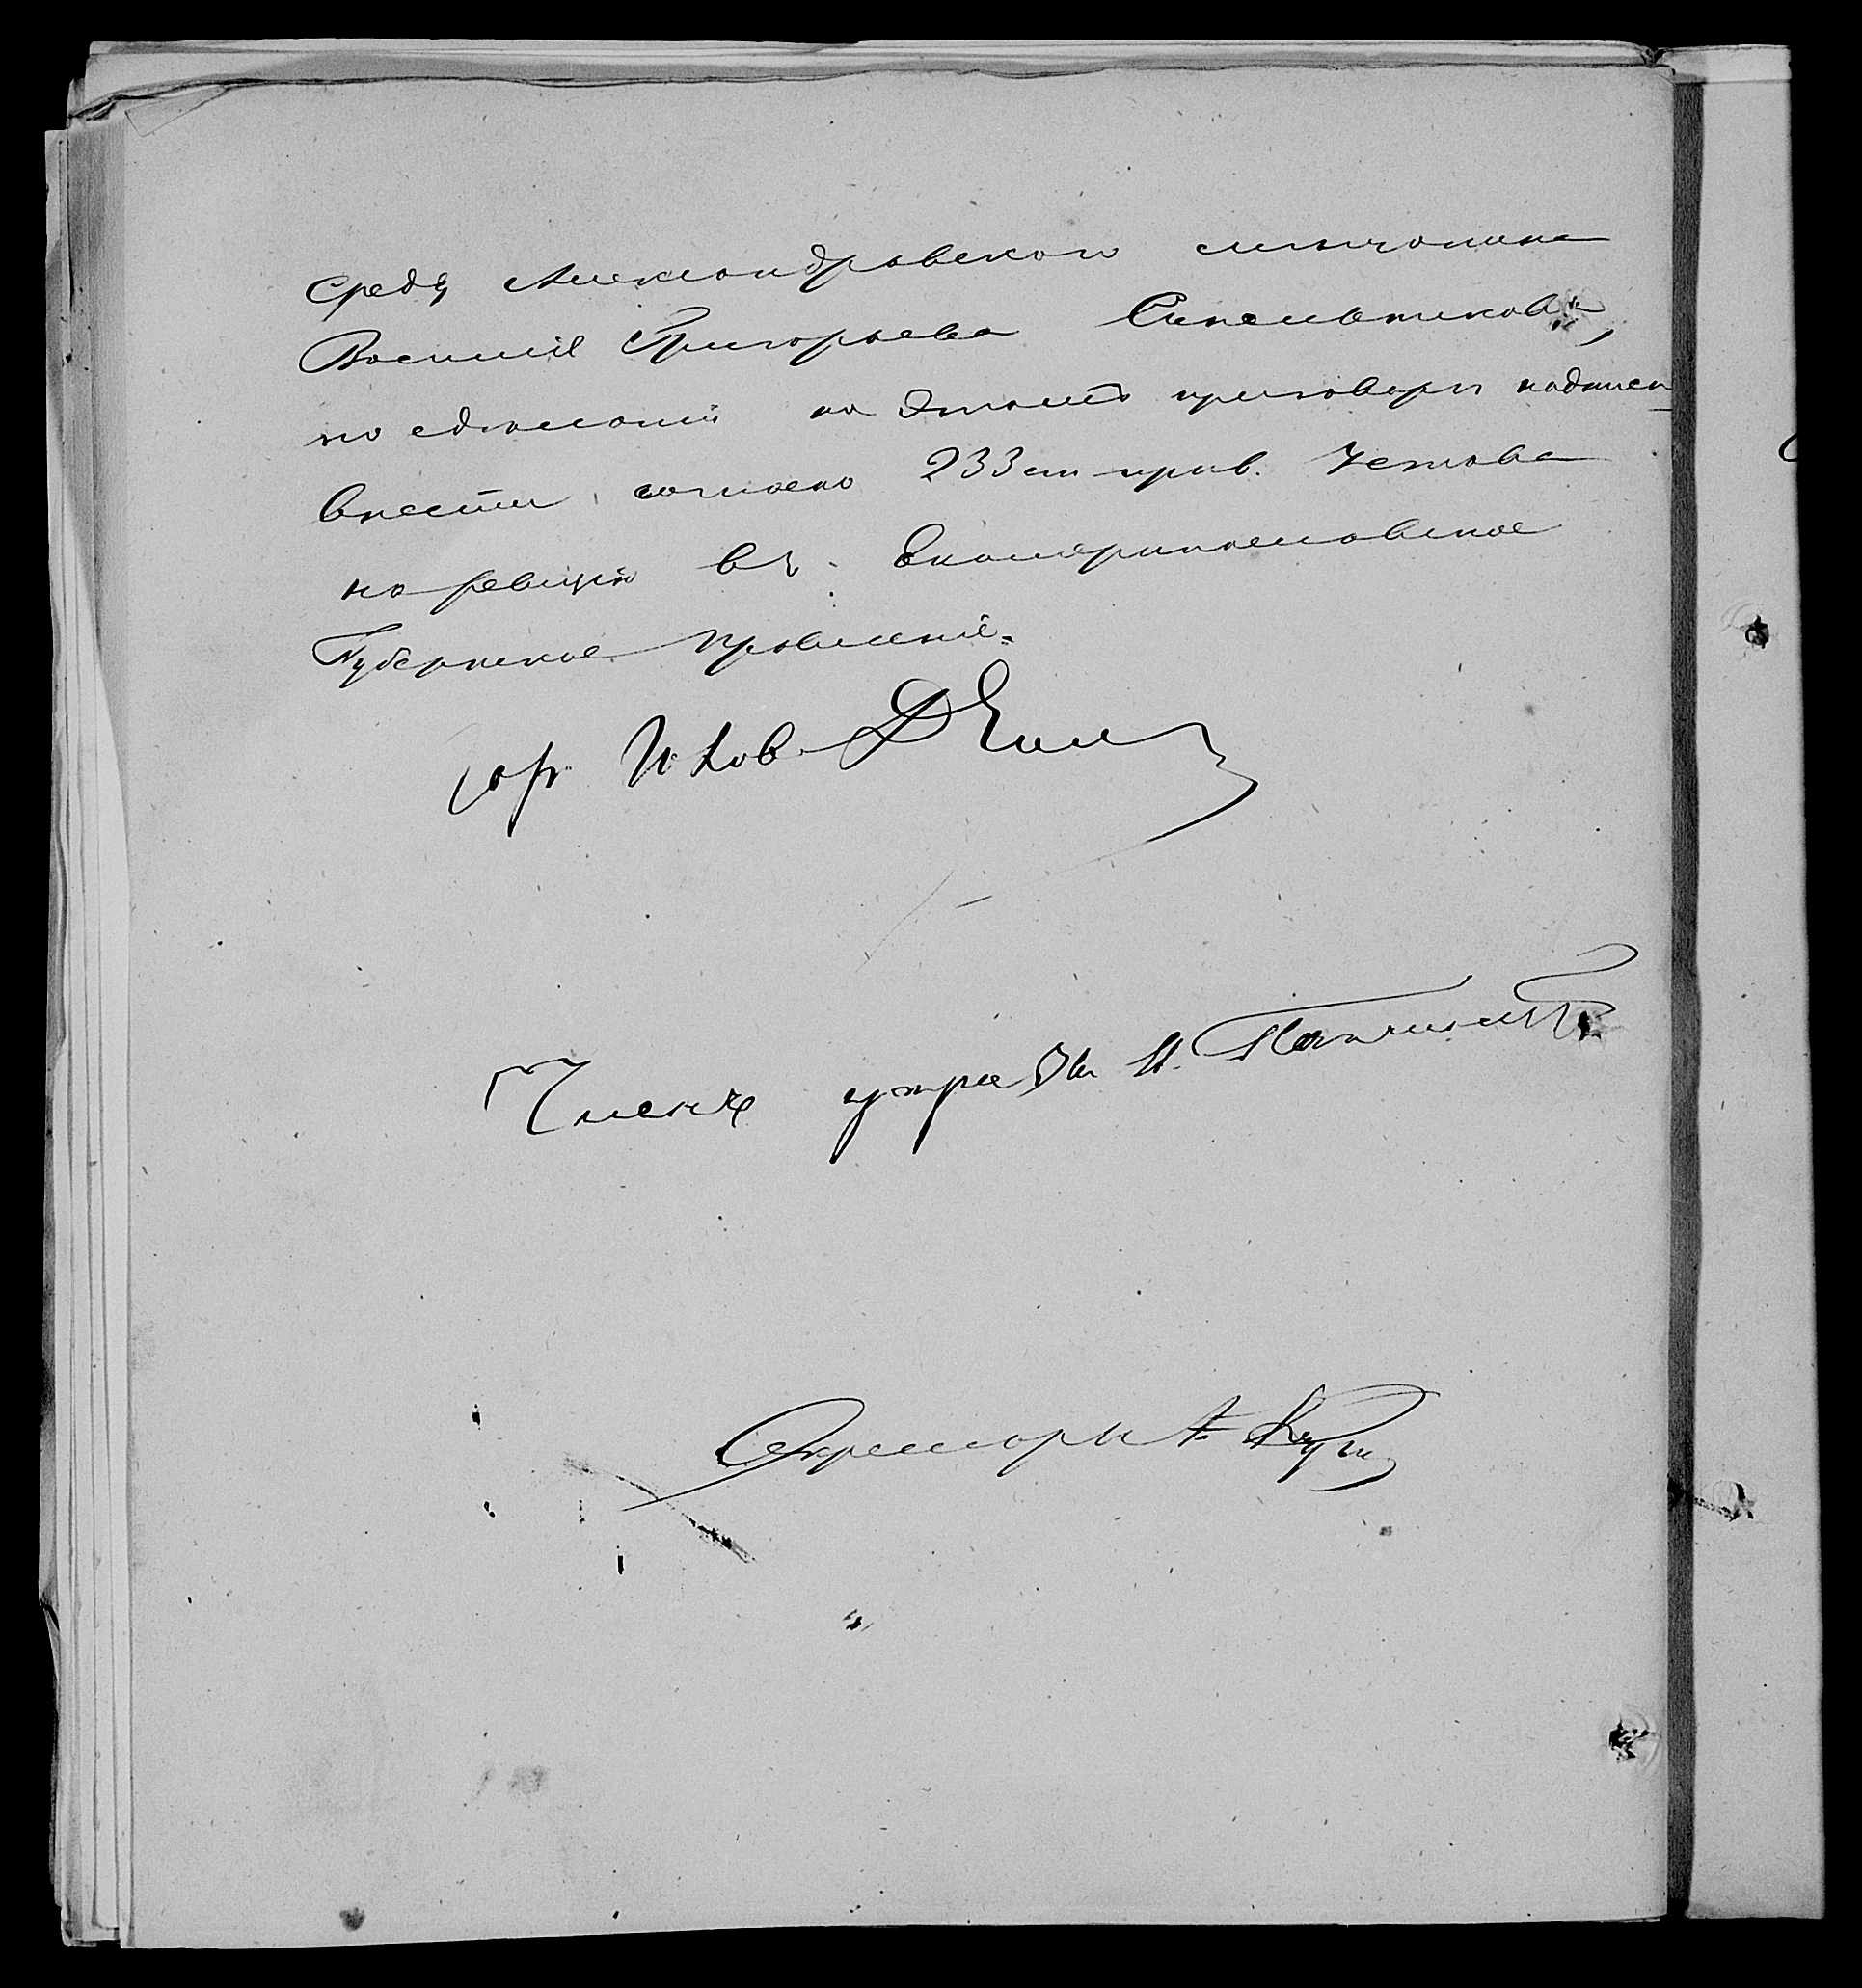 среду Александровскаго мѣщанина
Василія Григорьева Синельникова,
по сдѣланіи на этомъ приговорѣ надписи
внести, согласно 233 ст прив. Устава
на ревизію въ Екатеринославское
Губернское Правленіе.
Членъ управы И.
Секретарь А.